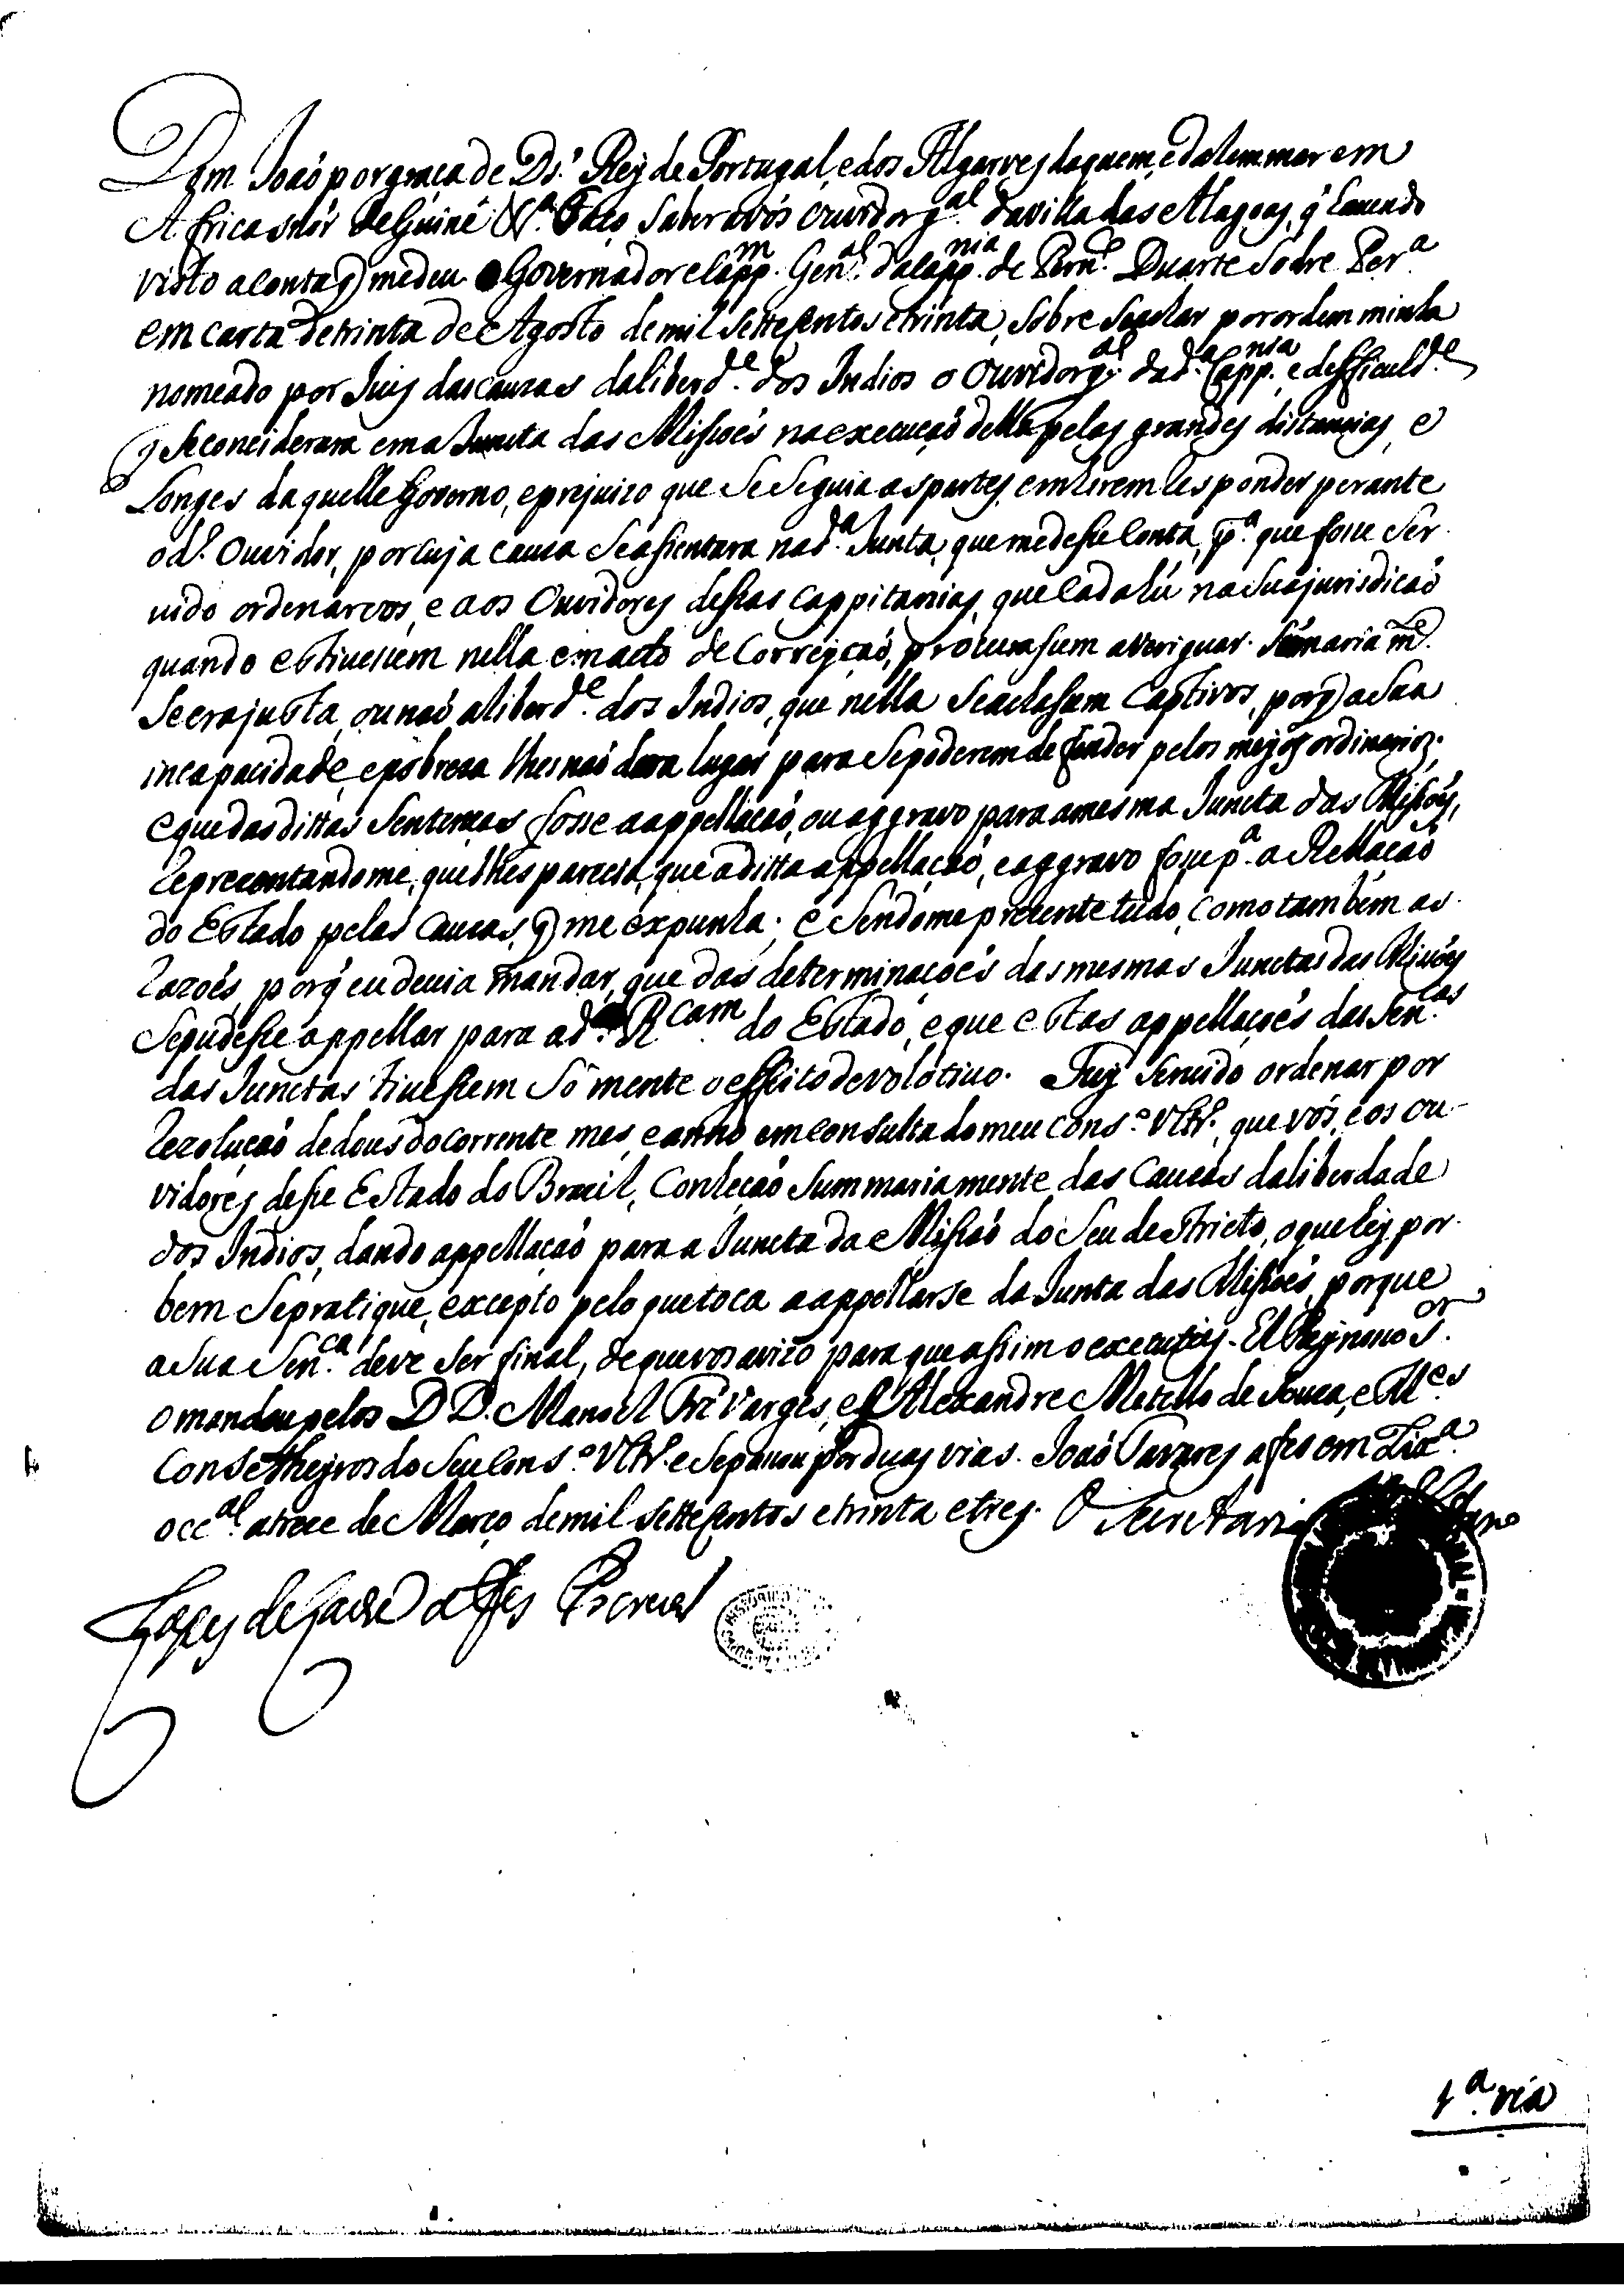 Dom Joaó por graça de Ds.' Rey de Portugal, e dos Algarves daquem, e dalem mar em
Africa snór de Guiné &.ª Faço Saber a vós ouvidor g.al da villa das Alagoas, q' havendo
visto a conta q) me deu o Governador e Capp.m Gen.al da Capp.nia de Pern.co Duarte Sodre Per.ª
em carta de trinta de Agosto de mil settecentos e trinta, sobre se achar por ordem minha
nomeado por Juiz das cauzas da liberd.e dos Indios o Ouvidor g.al da d.ª Capp.nia e defficuld.e
q Se conciderara em a Juncta das Missoés na execuçaó della pelas grandes distancias, e
Longes daquelle Governo, e prejuizo que Se Seguia as partes, em virem responder perante
o d.º Ouvidor, por cuja cauza Se assentara na d.ª Junta, que me desse conta, p.ª que fosse Ser
vido ordenarvos, e aos Ouvidores dessas cappitanias, que cada hú na sua jurisdicaó
quando estivessem nella em acto de Correyçaó, procurassem averiguar. Sũmaria m.e
Se era justa, ou naó a liberd.e dos Indios, que nella Se achassem Captivos, porq) a Sua
incapacidade, e pobreza lhes naó dava lugar para Se poderem defender pelos meyos ordinarios.
e que das dittas Sentenças fosse a appellaçaó, ou aggravo para a mesma Juncta das Missoés,
reprezentandome, que lhes parecia, que a ditta appellaçaó, e aggravo fosse p.ª a Rellaçaó
do Estado pelas cauzas, q) me expunha; e Sendome prezente tudo, como tambem as
razoés, porq' eu devia mandar, que das determinacoés das mesmas Junctas das Missoés
Se pudesse appellar para a d.ª R.cam do Estado, e que estas appellaçoés das Sen.cas
das Junctas tivessem Só mente o effeito devolotivo. Fuy Servido ordenar por
rezoluçaó de dous do corrente mes, e anno em consulta do meu Cons.º Vltr.º, que vós, e os ou-
vidores desse Estado do Brazil, Conheçaó Summariamente das Cauzas da liberdade
dos Indios, dando appellaçaó para a Juncta da Missaó do Seu destricto, o que hey por
bem Se pratique, excepto pelo que toca a appellarse da Junta das Missoés, porque
a Sua Sen.ca deve Ser final, de que vos avizo para que assim o executeis. El Rey nosso S.or
o mandou pelos D D. Manoel Frz' Varges, e Alexandre Metello de Souza, e M.es
Conselheyros do Seu Cons.º Vltr.º e Se passou por duas vias. Joaó Tavares a fes em Lix.ª
occ.al a treze de Março de mil settecentos e trinta e tres. O Secretario
Lopes de Lavre a fes Escrever
1.ª via